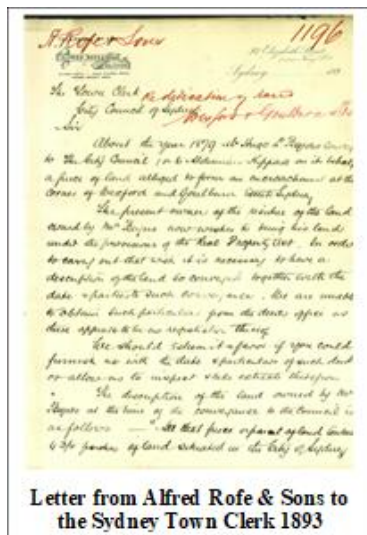 A. Rofe & Sons
1196
Sydney
The Town Clerk
City Council of Sydney
Re dedication of land
Wexford & Goulburn Sts
Sir
About the year 1879 Mr
to the City Council or to Alderman on its behalf
a piece of land alleged to form an encroachment at the
corner of Wexford and Goulburn Streets Sydney
The present owner of the residue of the land
owned by Mr now wishes to bring his land
under the provisions of the Real Property Act. In order
to carry out that wish it is necessary to have a
description of the land so conveyed together with the
date & parties such conveyance. We are unable
to obtain such particulars from the deeds office as
there appears to be no registration thereof
We should esteem it a favor if you could
furnish us with the date & particulars of such deed
or allow us to inspect & take extracts therefrom
The description of the land owned by Mr
at the time of the conveyance to the Council is
as follows — "All that piece or parcel of land
perches of land situated in the City of Sydney
Letter from Alfred Rofe & Sons to
the Sydney Town Clerk 1893